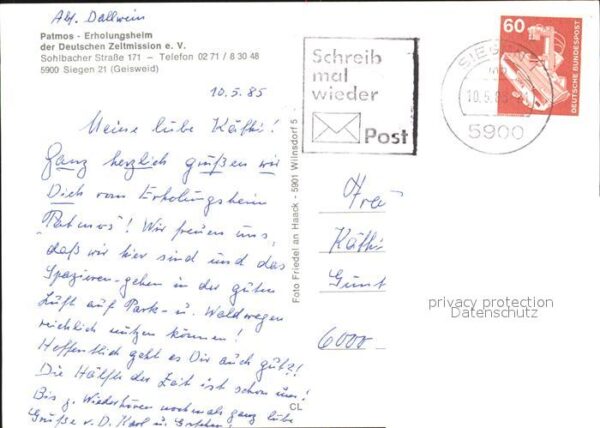 Abs. Dallwein
Patmos - Erholungsheim
der Deutschen Zeltmission e. V.
Sohlbacher Straße 171 – Telefon 02 71 / 8 30 48
5900 Siegen 21 (Geisweid)
10.5.85
Meine liebe Käthi!
Ganz herzlich grüßen wir
Dich vom Erholungsheim
"Patmos"! Wir freuen uns,
daß wir hier sind und das
Spazieren-gehen in der guten
Luft auf Park- u. Waldwegen
reichlich nützen können!
Hoffentlich geht es Dir auch gut?!
Die Hälfte der Zeit ist schon um!
Bis z. Wiederhören nochmals ganz liebe
Grüße v. D. Karl u. Gretchen!
CL
Foto Friedel an Haack - 5901 Wilnsdorf 5
Schreib
mal
wieder
Post
SIEG
10.5.85
5900
60
DEUTSCHE BUNDESPOST
Frau
Käthi
Günt
6000
privacy protection
Datenschutz